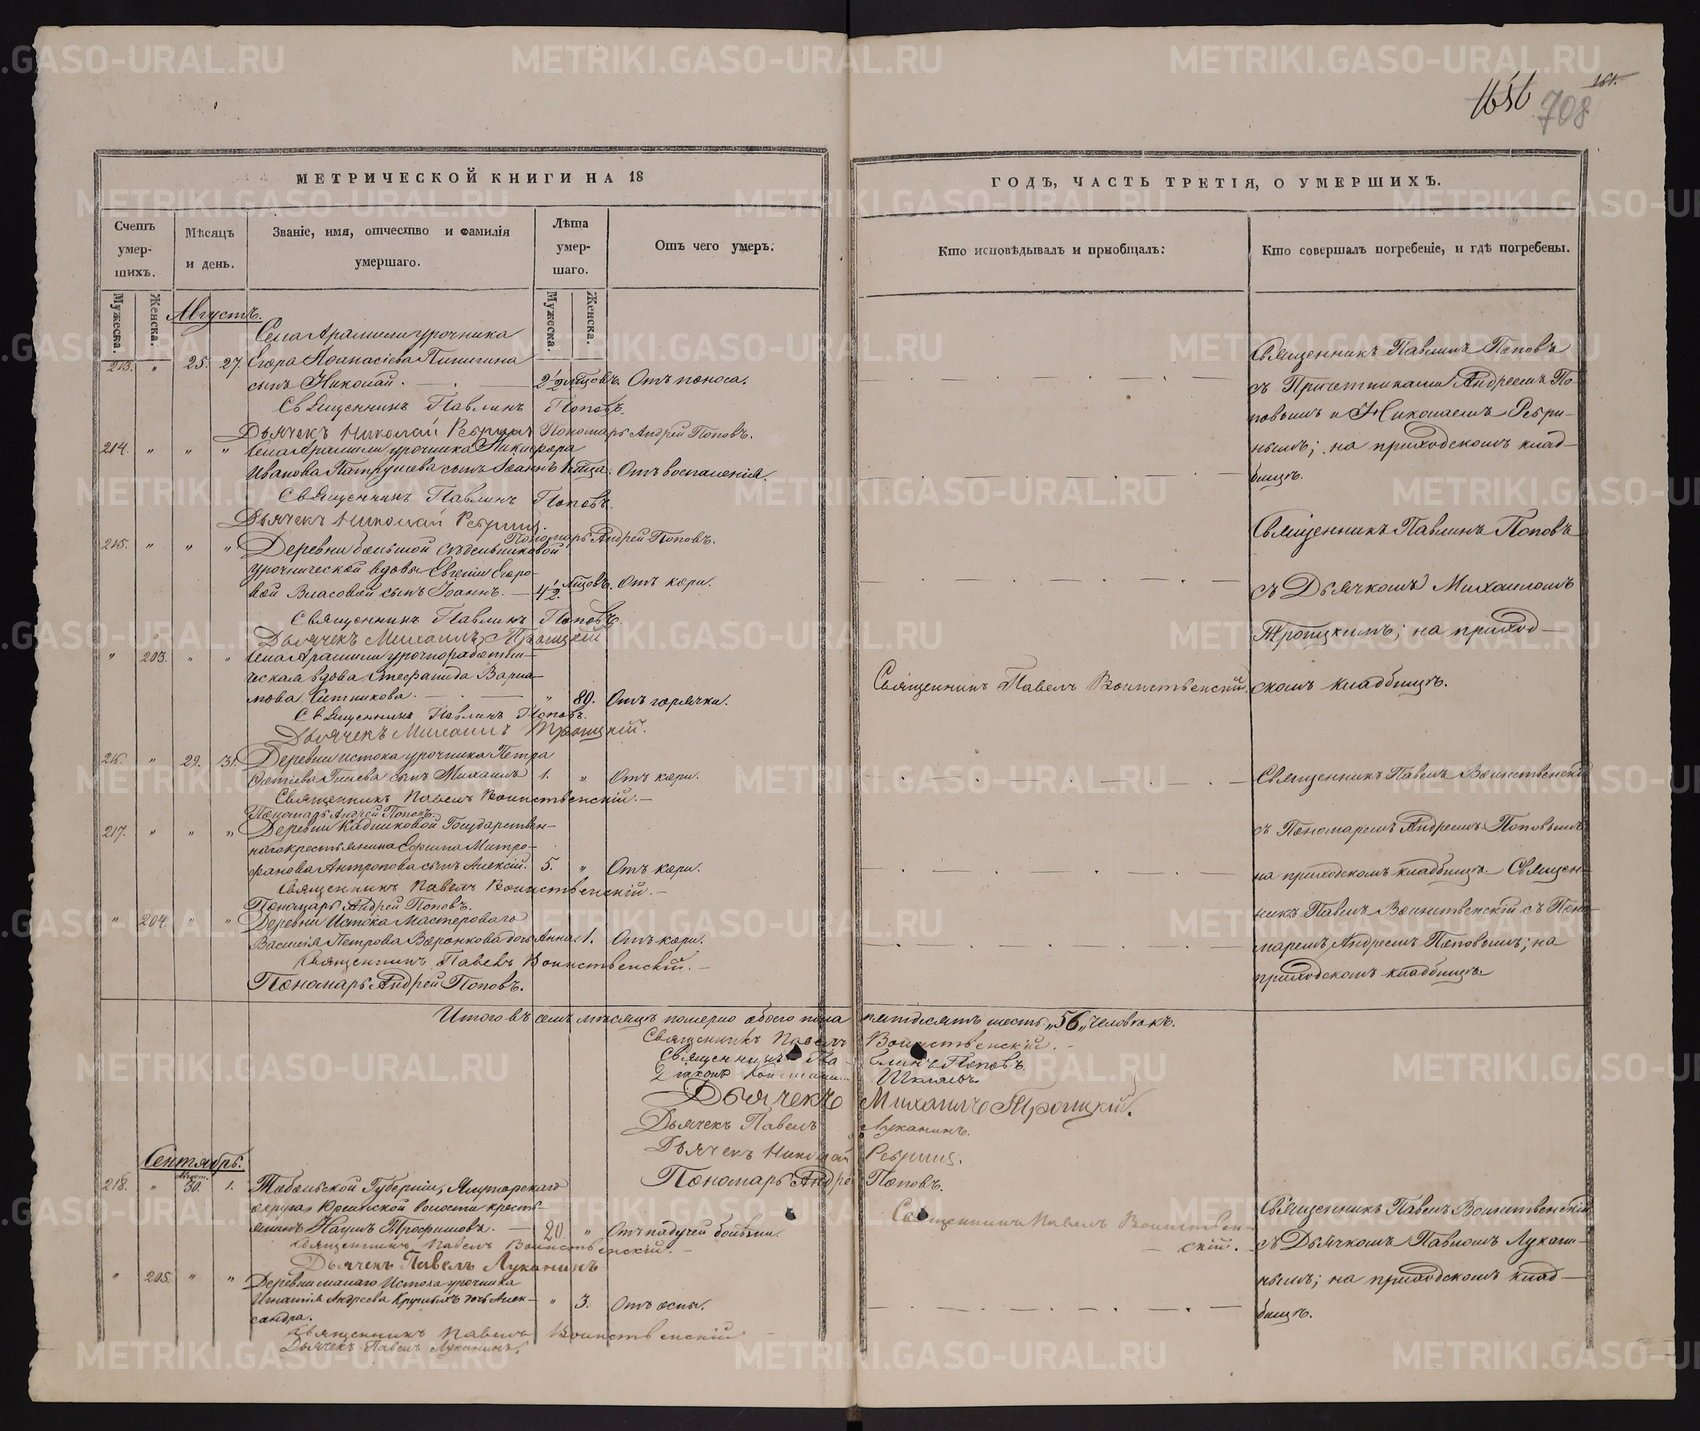 1656
161.
708
МЕТРИЧЕСКОЙ КНИГИ НА 18
ГОДЪ, ЧАСТЬ ТРЕТІЯ, О УМЕРШИХЪ.
Счетъ умершихъ.
Мѣсяцъ и день.
Званіе, имя, отчество и фамилія умершаго.
Лѣта умершаго.
Отъ чего умеръ.
Кто исповѣдывалъ и пріобщалъ.
Кто совершалъ погребеніе, и гдѣ погребены.
Мужеска.
Женска.
Мужеска.
Женска.
Августъ.
Села Арамили урочника
213. " 25. 27. Егора Аѳанасіева
сынъ Николай. 2 1/2 мѣсяцовъ. Отъ поноса.
Священникъ Павлинъ Поповъ.
Дьячекъ Николай Ребринъ Пономарь Андрей Поповъ.
214. " " " Села Арамили урочника Никифора
Иванова Патрушева сынъ Іоаннъ Отъ воспаленія.
Священникъ Павлинъ Поповъ.
Дьячекъ Николай Ребринъ.
Пономарь Андрей Поповъ.
215. " " " Деревни большой Сѣдельниковой
урочнической вдовы Евгеніи Егоро-
вой Власовой сынъ Іоаннъ. 4 1/2 мѣсяцовъ. Отъ кори.
Священникъ Павлинъ Поповъ.
Дьячекъ Михаилъ Троицкій
" 203. " " Села Арамили урочноработни-
ческая вдова Стефанида Варла-
мова Ситникова. " 80. Отъ горячки.
Священникъ Павлинъ Поповъ.
Дьячекъ Михаилъ Троицкій.
216. " 29. 31. Деревни истока урочника Петра
Фотіева Гилева сынъ Михаилъ 1. " Отъ кори.
Священникъ Павелъ Воинственскій.
Пономарь Андрей Поповъ.
217. " " " Деревни Кадниковой Государствен-
наго крестьянина Ефима Митро-
фанова Антропова сынъ Алексій. 5. " Отъ кори.
Священникъ Павелъ Воинственскій.
Пономарь Андрей Поповъ.
" 204. " " Деревни Истока Мастероваго
Василія Петрова Воронкова дочь Анна 1. Отъ кори.
Священникъ Павелъ Воинственскій.
Пономарь Андрей Поповъ.
Священникъ Павелъ Воинственскій.
Священникъ Павлинъ Поповъ
съ Причетниками Андреемъ По-
повымъ и Николаемъ Ребри-
нымъ; на приходскомъ клад-
бищѣ.
Священникъ Павлинъ Поповъ
съ Дьячкомъ Михаиломъ
Троицкимъ; на приход-
скомъ кладбищѣ.
Священникъ Павелъ Воинственскій
съ Пономаремъ Андреемъ Поповымъ
на приходскомъ кладбищѣ. Священ-
никъ Павелъ Воинственскій съ Поно-
маремъ Андреемъ Поповымъ; на
приходскомъ кладбищѣ.
Итого въ семъ мѣсяцѣ померло обоего пола пятдесятъ шесть „56„ человѣкъ.
Священникъ Павелъ Воинственскій.
Священникъ Павлинъ Поповъ
Діаконъ
Дьячекъ Михаилъ Троицкій.
Дьячекъ Павелъ Луканинъ.
Дьячекъ Николай Ребринъ.
Пономарь Андрей Поповъ.
Сентябрь.
218. " 30. 1. Тобольской Губерніи, Ялуторскаго
округа, волости кресть-
янинъ Наумъ Трофимовъ. 20 " Отъ падучей болѣзни.
Священникъ Павелъ Воинственскій.
Дьячекъ Павелъ Луканинъ
" 205. " " Деревни малаго Истока урочника
Игнатія Андреева дочь Алек-
сандра. " 3. Отъ оспы.
Священникъ Павелъ Воинственскій
Дьячекъ Павелъ Луканинъ.
Священникъ Павелъ Воинствен-
скій.
Священникъ Павелъ Воинственскій
съ Дьячкомъ Павломъ Лукани-
нымъ; на приходскомъ клад-
бищѣ.
METRIKI.GASO-URAL.RU